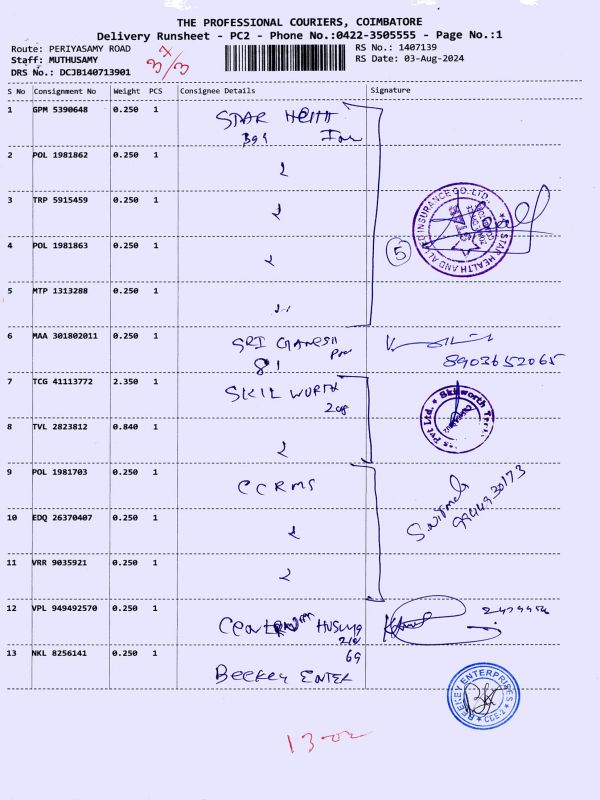 THE PROFESSIONAL COURIERS, COIMBATORE
Delivery Runsheet - PC2 - Phone No.:0422-3505555 - Page No.:1
Route: PERIYASAMY ROAD
Staff: MUTHUSAMY
DRS No.: DCJB140713901
37/3
RS No.: 1407139
RS Date: 03-Aug-2024
S No Consignment No Weight PCS Consignee Details Signature
1 GPM 5390648 0.250 1 STAR Helth
2 POL 1981862 0.250 1
3 TRP 5915459 0.250 1
4 POL 1981863 0.250 1
5 MTP 1313288 0.250 1
5
STAR HEALTH AND ALLIED INSURANCE CO. LTD.
6 MAA 301802011 0.250 1 SRI GANESH
81
8903652065
7 TCG 41113772 2.350 1 SKIL WORTH
8 TVL 2823812 0.840 1
9 POL 1981703 0.250 1 CCRMS
10 EDQ 26370407 0.250 1
11 VRR 9035921 0.250 1
9944930173
12 VPL 949492570 0.250 1
13 NKL 8256141 0.250 1 69
BEEKEY ENTER
BEEKEY ENTERPRISES
CBE-2
13-02